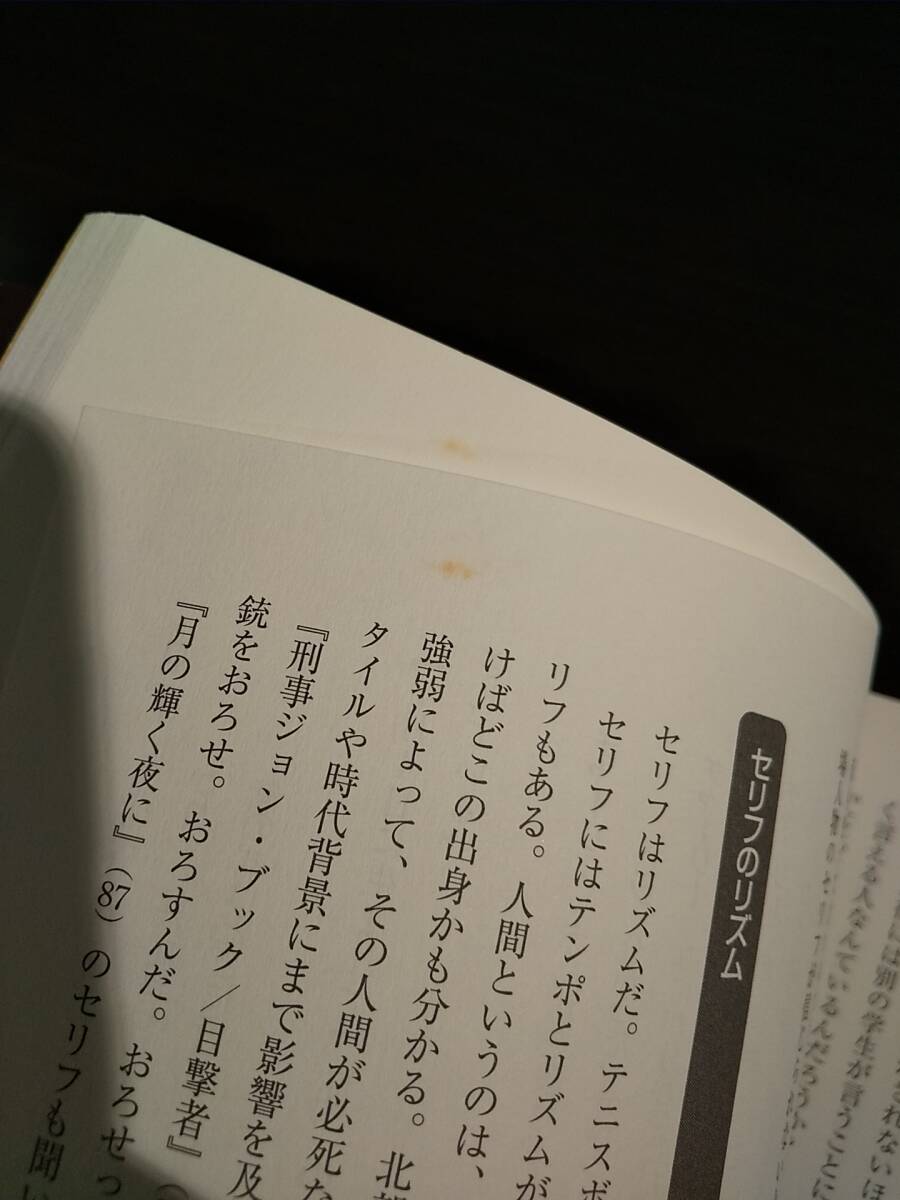 く言える人なんているんだろうか
には別の学生が言うことに
セリフのリズム
セリフはリズムだ。テニスボ
セリフにはテンポとリズムが
リフもある。人間というのは、
けばどこの出身かも分かる。北部
強弱によって、その人間が必死な
タイルや時代背景にまで影響を及
『刑事ジョン・ブック/目撃者』(
銃をおろせ。おろすんだ。おろせっ
『月の輝く夜に』(87)のセリフも聞い